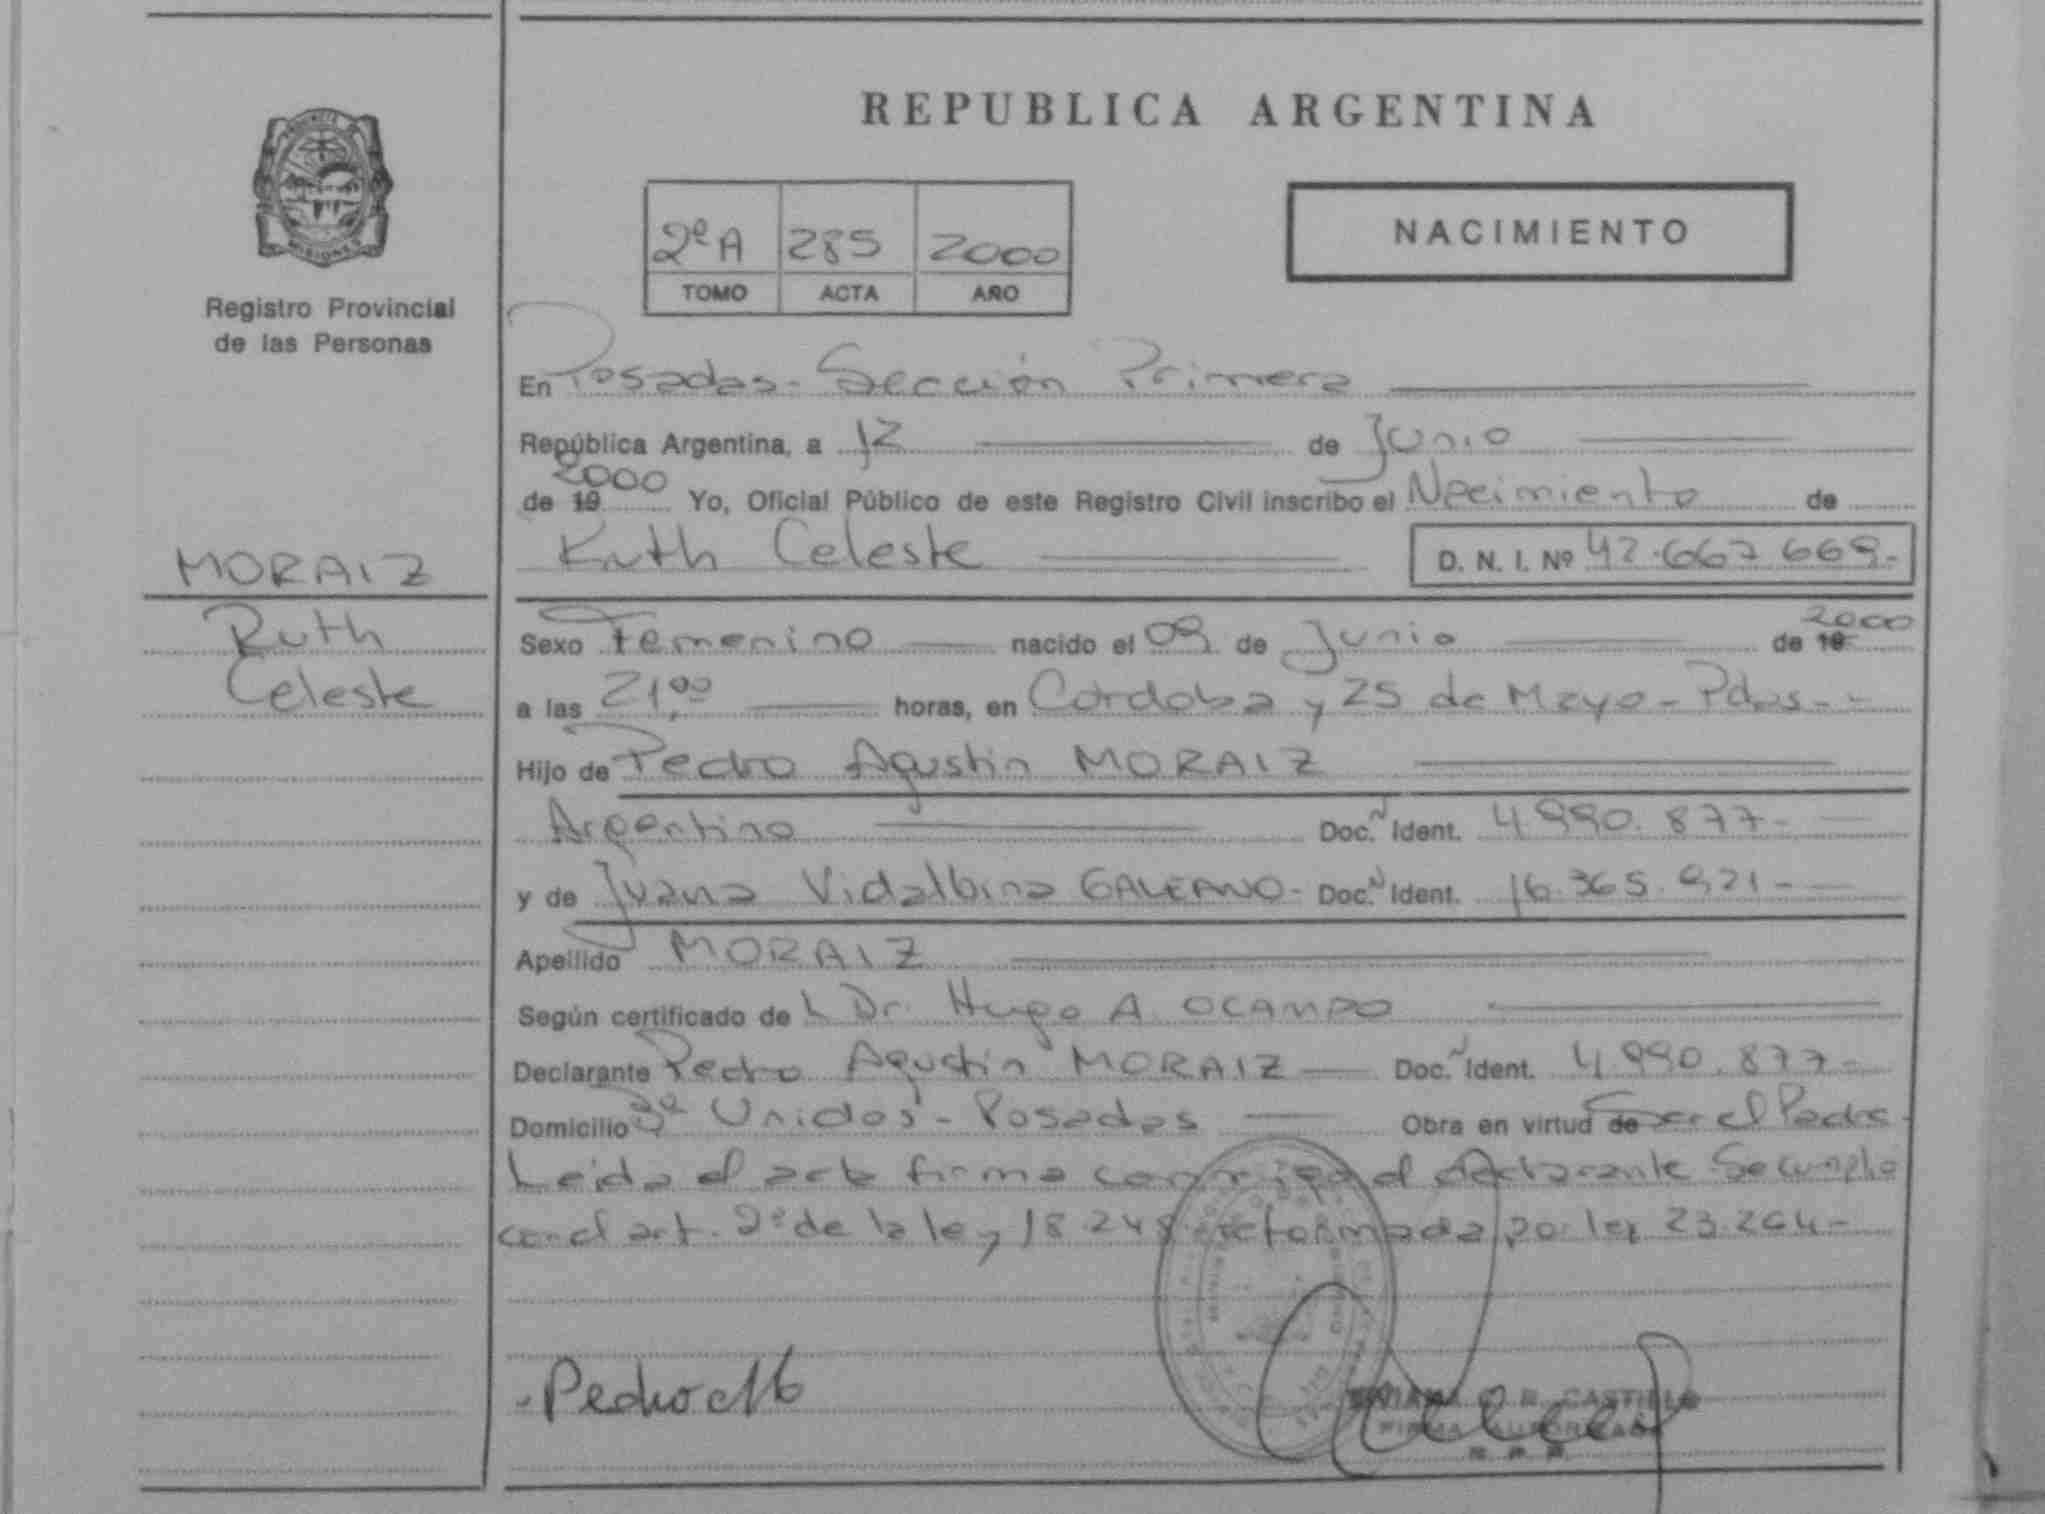 REPUBLICA ARGENTINA
PROVINCIA DE
MISIONES
Registro Provincial
de las Personas
2º A 285 2000
TOMO ACTA AÑO
NACIMIENTO
En Posadas - Sección Primera
República Argentina, a 12 de Junio
de 19 2000 Yo, Oficial Público de este Registro Civil inscribo el Nacimiento de
Ruth Celeste D. N. I. Nº 42.667.669.-
MORAIZ
Ruth
Celeste
Sexo Femenino nacido el 09 de Junio de 19 2000
a las 21,00 horas, en Cordoba y 25 de Mayo - Pdas - -
Hijo de Pedro Agustin MORAIZ
Argentino Doc. N Ident. 4.990.877 -
y de Juana Vidalbina GALEANO - Doc. N Ident. 16.365.921 -
Apellido MORAIZ
Según certificado de L Dr. Hugo A. OCAMPO
Declarante Pedro Agustin MORAIZ Doc. N Ident. 4.990.877 -
Domicilio Unidos - Posadas Obra en virtud de Ser el Padre
Leida el acta firma conmigo el declarante Se cumplio
con el art. 2º de la ley 18.248 reformada por ley 23.264 -
Pedro
R. CASTILLO
FIRMA AUTORIZADA
R. P. P.